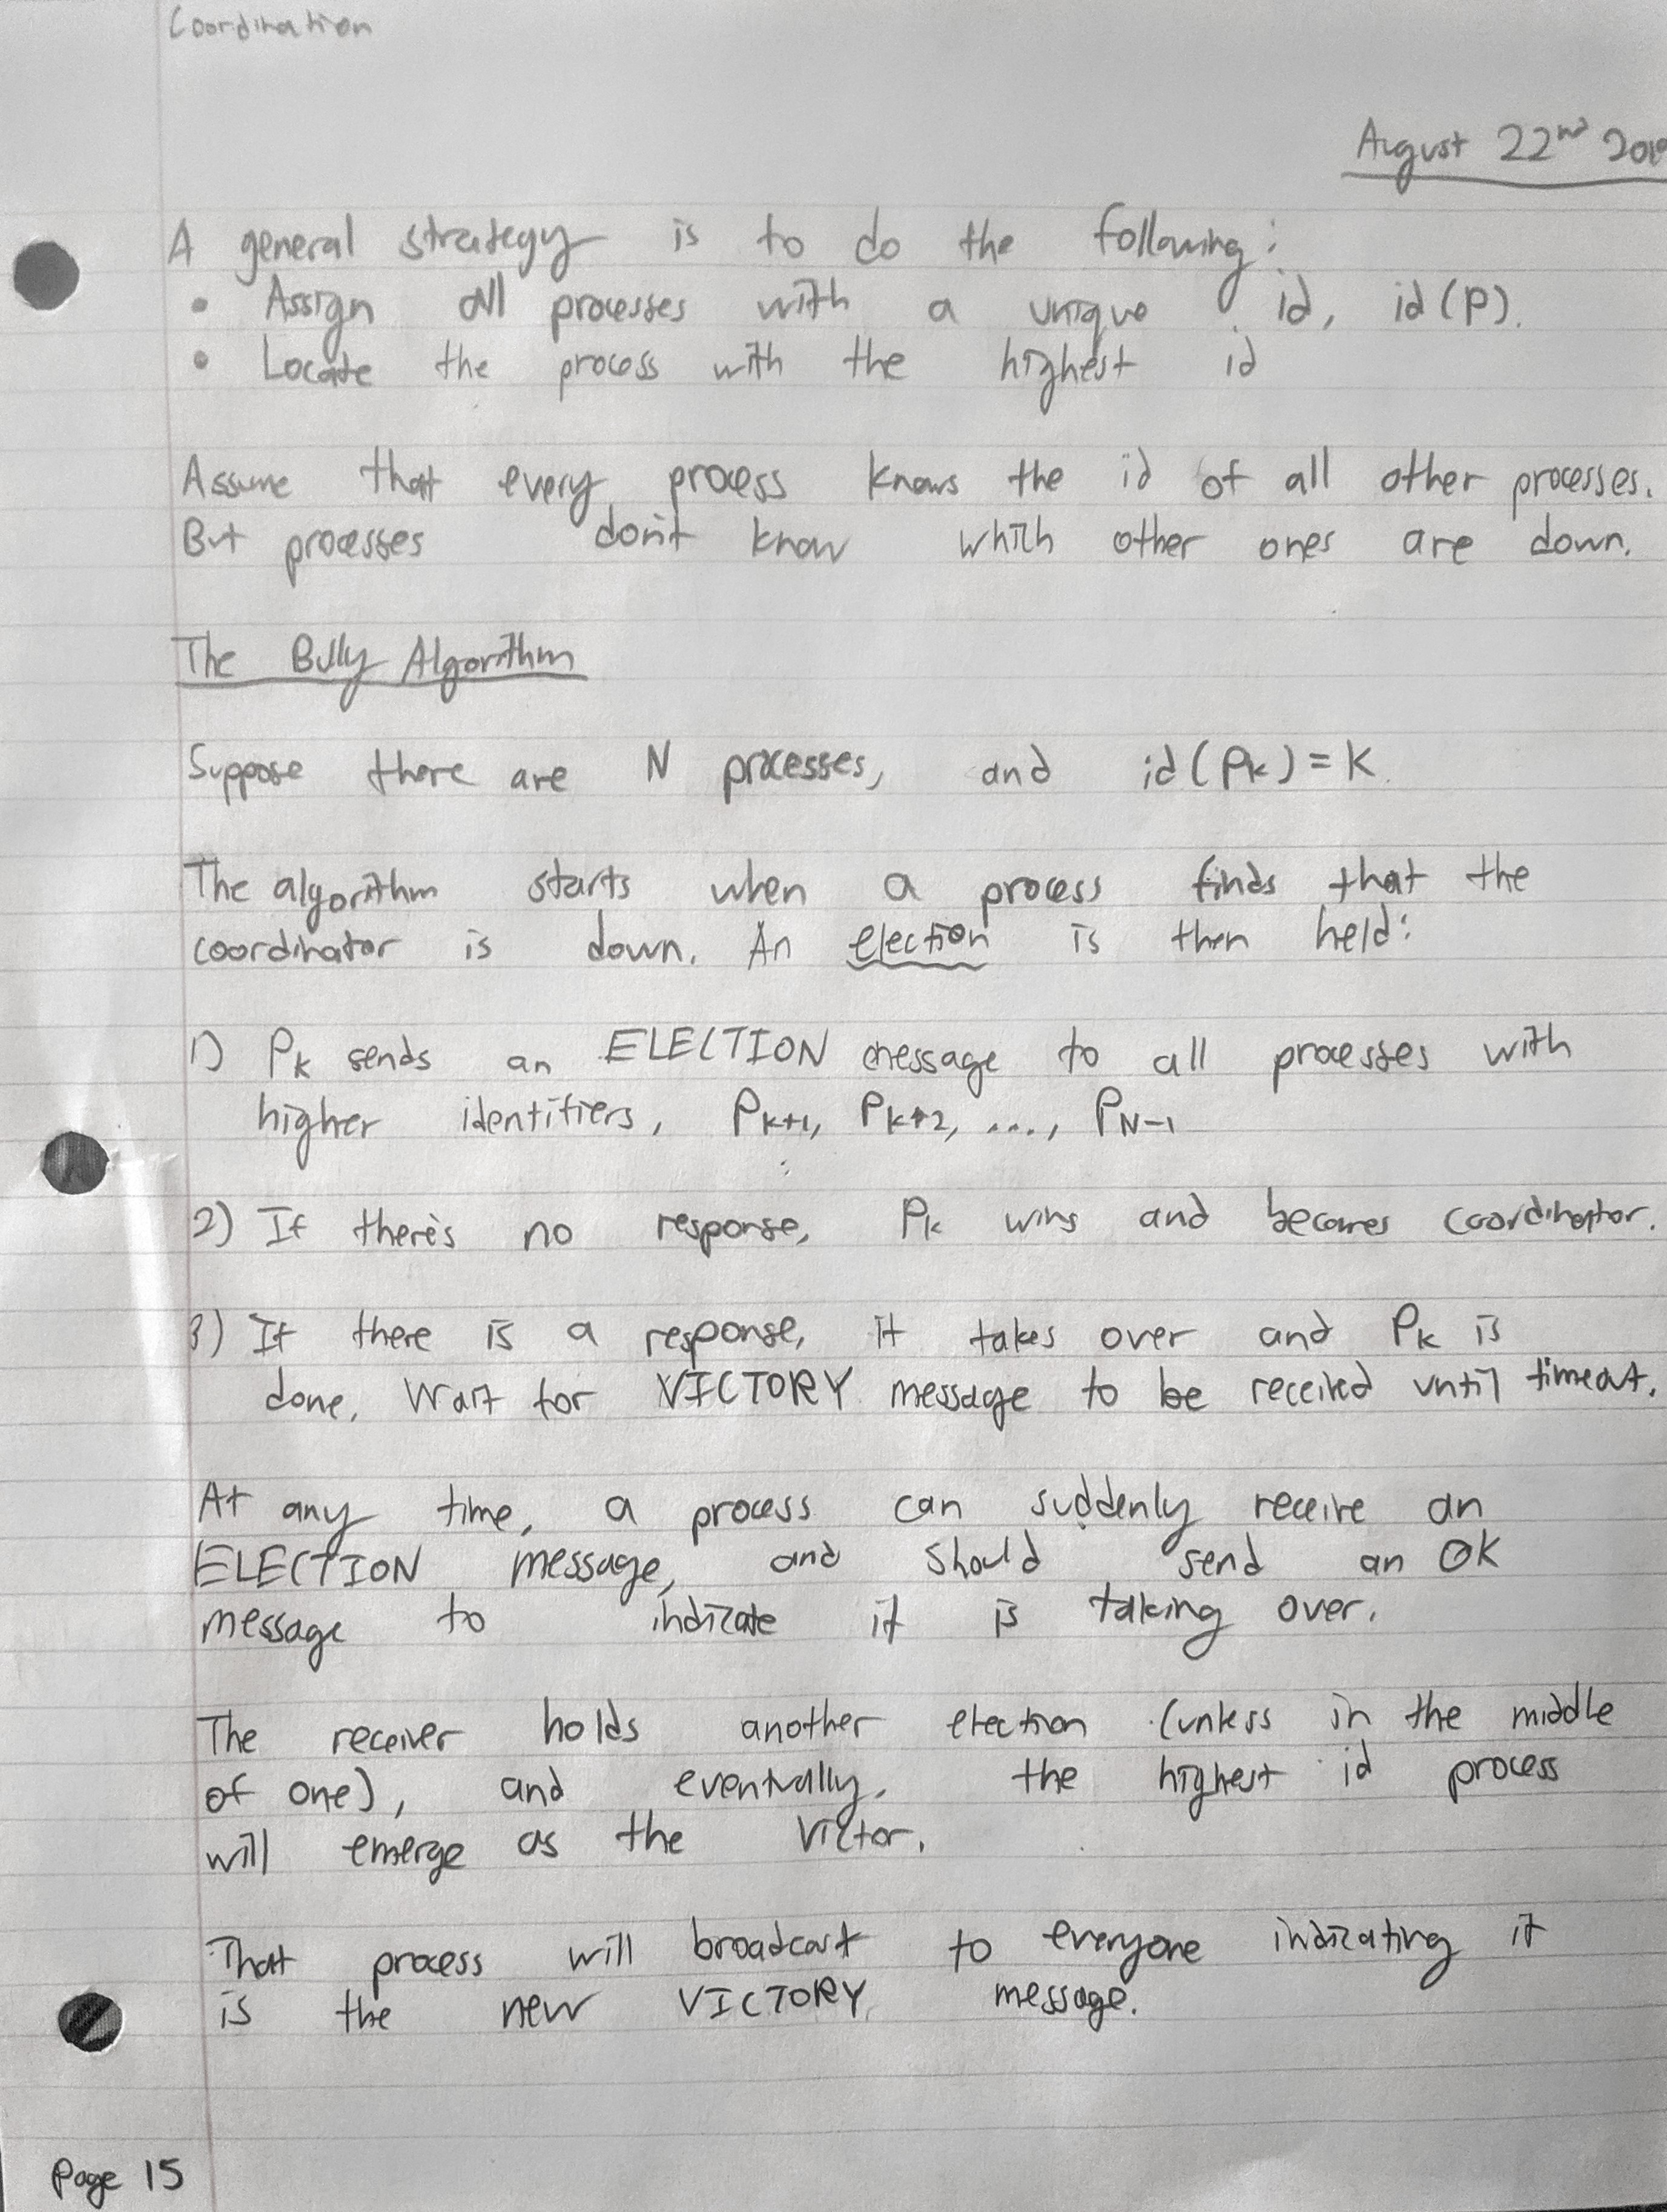 Coordination
August 22nd
A general strategy is to do the following:
• Assign all processes with a unique id, id(P).
• Locate the process with the highest id
Assume that every process knows the id of all other processes.
But processes don't know which other ones are down.
The Bully Algorithm
Suppose there are N processes, and id(Pk) = K.
The algorithm starts when a process finds that the
coordinator is down. An election is then held:
1) Pk sends an ELECTION message to all processes with
higher identifiers, Pk+1, Pk+2, ..., PN-1
2) If there's no response, Pk wins and becomes coordinator.
3) If there is a response, it takes over and Pk is
done. Wait for VICTORY message to be received until timeout.
At any time, a process can suddenly receive an
ELECTION message, and should send an OK
message to indicate it is taking over.
The receiver holds another election (unless in the middle
of one), and eventually, the highest id process
will emerge as the victor.
That process will broadcast to everyone indicating it
is the new VICTORY message.
Page 15